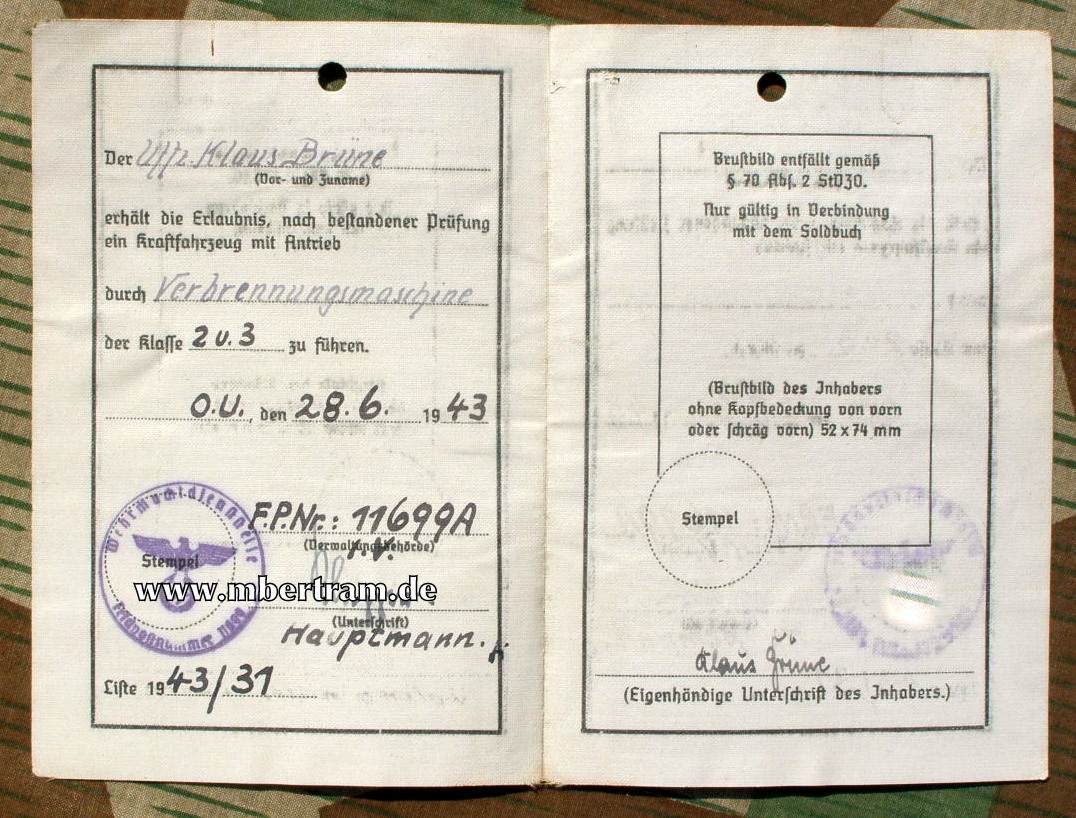 Der Uffz. Klaus Brüne
(Vor- und Zuname)
erhält die Erlaubnis, nach bestandener Prüfung
ein Kraftfahrzeug mit Antrieb
durch Verbrennungsmaschine
der Klasse 2 u. 3 zu führen.
O.U., den 28.6. 1943
F.P.Nr.: 11699A
(Verwaltungsbehörde)
Stempel
www.mbertram.de
(Unterschrift)
Hauptmann.
Liste 1943/31
Brustbild entfällt gemäß
§ 70 Abs. 2 StVZO.
Nur gültig in Verbindung
mit dem Soldbuch
(Brustbild des Inhabers
ohne Kopfbedeckung von vorn
oder schräg vorn) 52 x 74 mm
Stempel
Klaus Brüne
(Eigenhändige Unterschrift des Inhabers.)